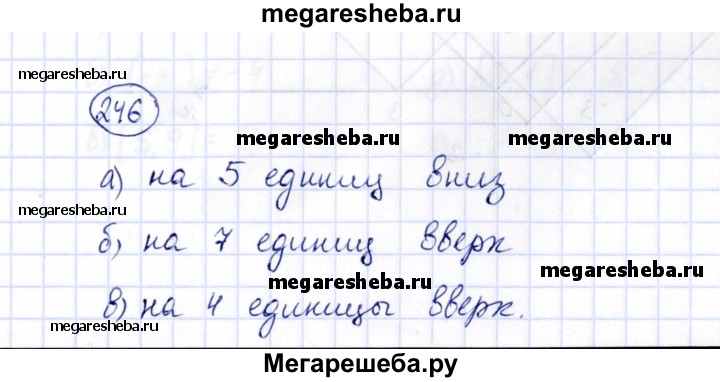 megaresheba.ru
megaresheba.ru
246
megaresheba.ru megaresheba.ru
а) на 5 единиц вниз
megaresheba.ru
б) на 7 единиц вверх
megaresheba.ru megaresheba.ru
в) на 4 единицы вверх.
megaresheba.ru
Мегарешеба.ру